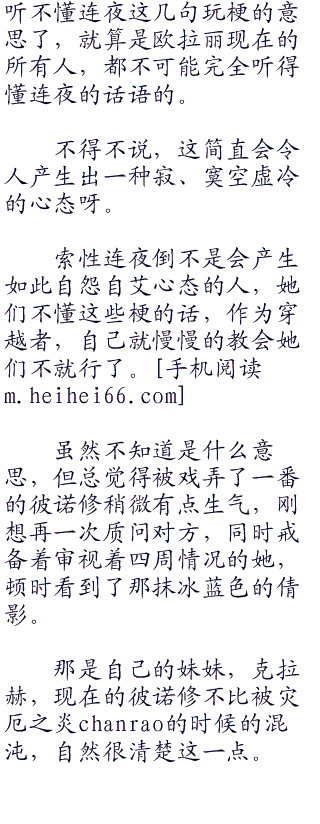 听不懂连夜这几句玩梗的意
思了，就算是欧拉丽现在的
所有人，都不可能完全听得
懂连夜的话语的。
不得不说，这简直会令
人产生出一种寂、寞空虚冷
的心态呀。
索性连夜倒不是会产生
如此自怨自艾心态的人，她
们不懂这些梗的话，作为穿
越者，自己就慢慢的教会她
们不就行了。[手机阅读
m.heihei66.com]
虽然不知道是什么意
思，但总觉得被戏弄了一番
的彼诺修稍微有点生气，刚
想再一次质问对方，同时戒
备着审视着四周情况的她，
顿时看到了那抹冰蓝色的倩
影。
那是自己的妹妹，克拉
赫，现在的彼诺修不比被灾
厄之炎chanrao的时候的混
沌，自然很清楚这一点。